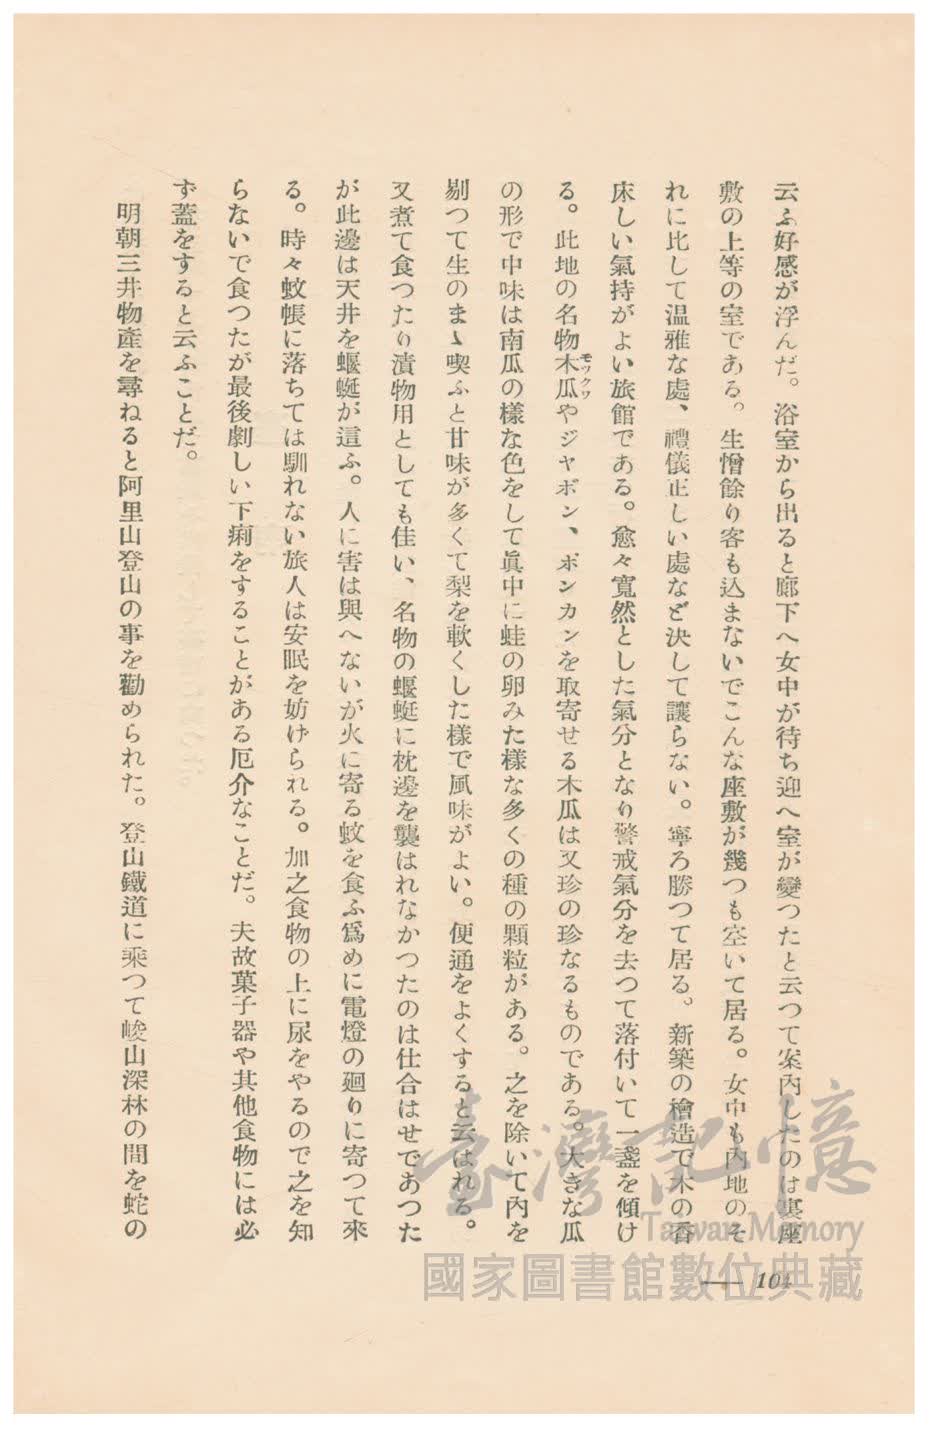 云ふ好感が浮んだ。浴室から出ると廊下へ女中が待ち迎へ室が變つたと云つて案内したのは裏座
敷の上等の室である。生憎餘り客も込まないでこんな座敷が幾つも空いて居る。女中も内地のそ
れに比して温雅な處、禮儀正しい處など決して讓らない。寧ろ勝つて居る。新築の檜造で木の香
床しい氣持がよい旅館である。愈々寬然とした氣分となり警戒氣分を去つて落付いて一盞を傾け
る。此地の名物木瓜やジャボン、ポンカンを取寄せる木瓜は又珍の珍なるものである。大きな瓜
モツクワ
の形で中味は南瓜の樣な色をして眞中に蛙の卵みた樣な多くの種の顆粒がある。之を除いて内を
剔つて生のまゝ喫ふと甘味が多くて梨を軟くした樣で風味がよい。便通をよくすると云はれる。
又煮て食つたり漬物用としても佳い、名物の蝘蜓に枕邊を襲はれなかつたのは仕合はせであつた
が此邊は天井を蝘蜓が這ふ。人に害は與へないが火に寄る蚊を食ふ爲めに電燈の廻りに寄つて來
る。時々蚊帳に落ちては馴れない旅人は安眠を妨げられる。加之食物の上に尿をやるので之を知
らないで食つたが最後劇しい下痢をすることがある厄介なことだ。夫故菓子器や其他食物には必
ず蓋をすると云ふことだ。
明朝三井物產を尋ねると阿里山登山の事を勸められた。登山鐵道に乘つて峻山深林の間を蛇の
— 104
臺灣記憶
Taiwan Memory
國家圖書館數位典藏